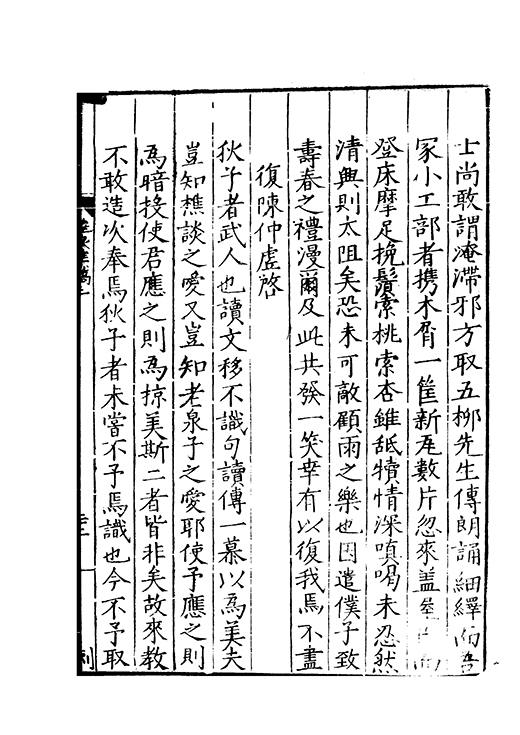 士尚敢謂淹滯邪方取五柳先生傳朗誦細繹而吾
冢小工部者携木屑一筐新瓦數片忽來盖屋
登床摩足挽鬚索桃索杏雖舐犢情深嗔喝未忍然
清興則太阻矣恐未可敵顧雨之樂也因遣僕子致
壽春之禮漫爾及此共發一笑幸有以復我焉不盡
復陳仲虛啓
狄子者武人也讀文移不識句讀傳一慕以為美夫
豈知樵談之噯又豈知老泉子之愛耶使予應之則
為暗投使君應之則為掠美斯二者皆非矣故來教
不敢造次奉焉狄子者未嘗不予焉識也今不予取